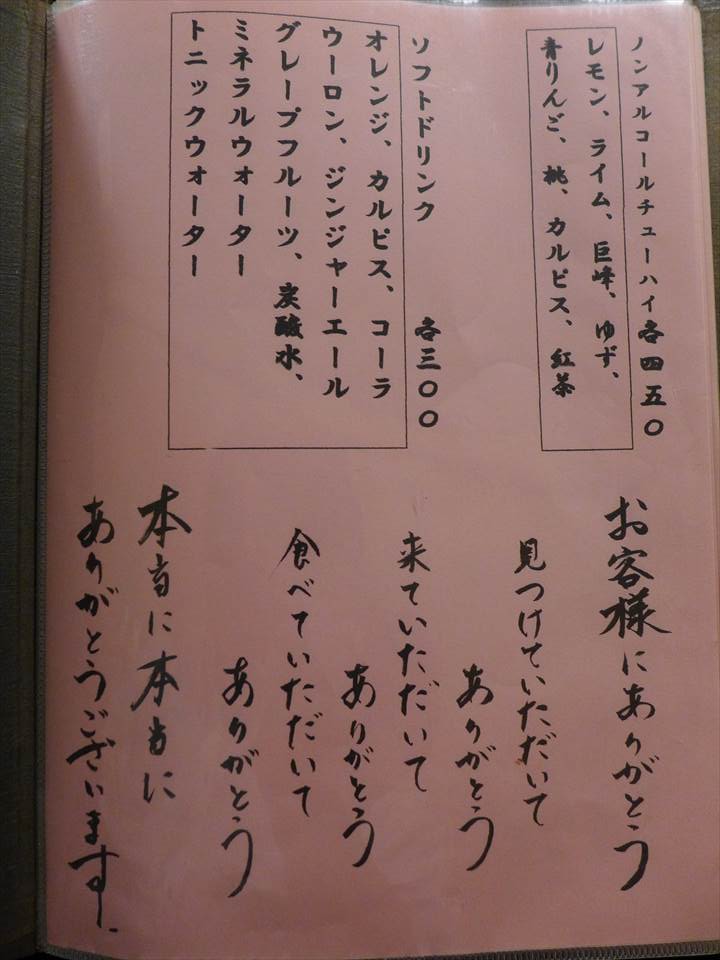 ノンアルコールチューハイ各四五〇
レモン、ライム、巨峰、ゆず、
青りんご、桃、カルピス、紅茶
ソフトドリンク 各三〇〇
オレンジ、カルピス、コーラ
ウーロン、ジンジャーエール
グレープフルーツ、炭酸水、
ミネラルウォーター
トニックウォーター
お客様にありがとう
見つけていただいて
ありがとう
来ていただいて
ありがとう
食べていただいて
ありがとう
本当に本当に
ありがとうございます。